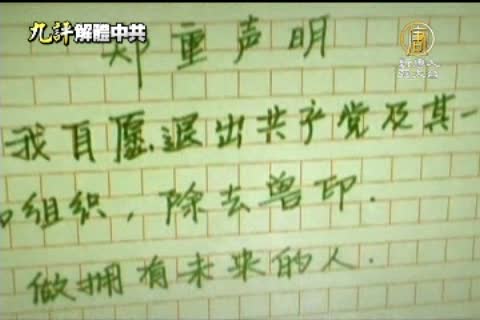 九評解體中共
新唐人
亞太台
郑重声明
我自愿退出共产党及其一
组织，除去兽印.
做拥有未来的人.